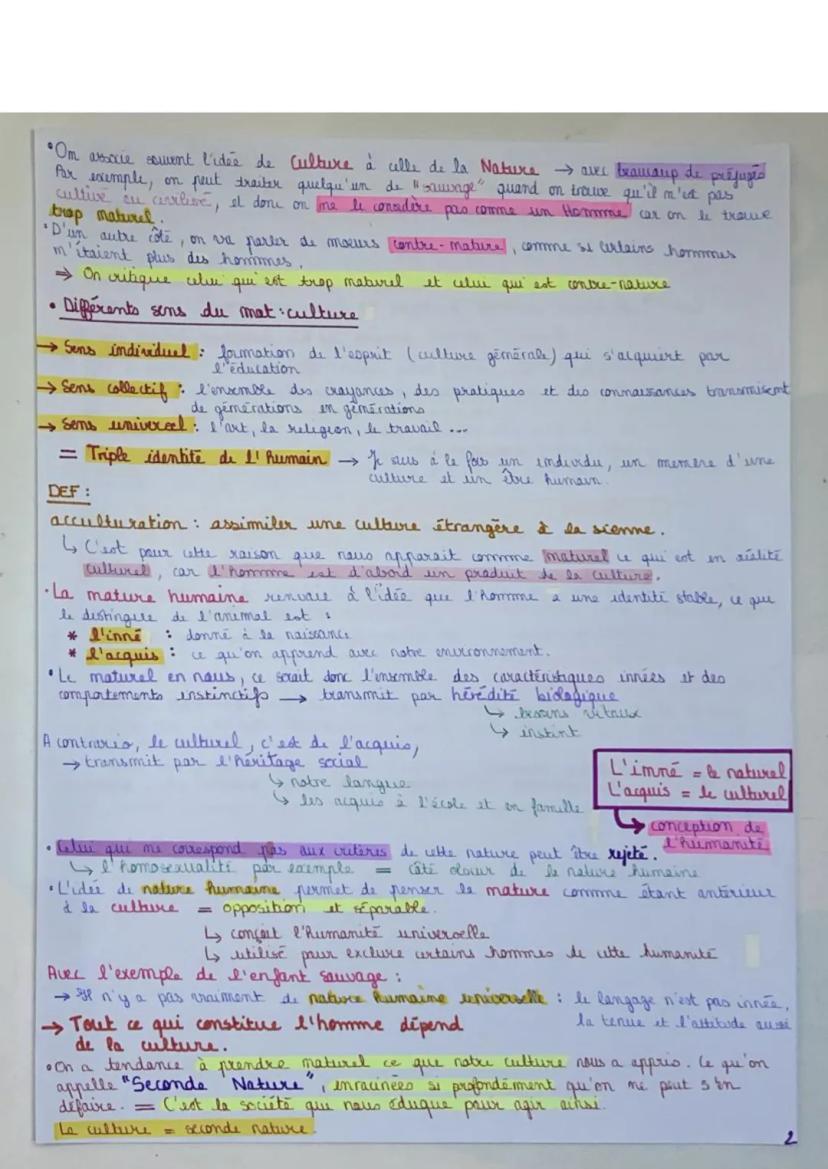 • On associe souvent l'idée de Culture à celle de la Nature → avec beaucoup de préjugés
Par exemple, on peut traiter quelqu'un de "sauvage" quand on trouve qu'il n'est pas
cultivé ou civilisé, et donc on ne le considère pas comme un Homme car on le trouve
trop naturel.
• D'un autre côté, on va parler de mœurs contre-nature, comme si certains hommes
n'étaient plus des hommes.
⇒ On critique celui qui est trop naturel et celui qui est contre-nature
• Différents sens du mot : culture
→ Sens individuel : formation de l'esprit (culture générale) qui s'acquiert par
l'éducation
→ Sens collectif : l'ensemble des croyances, des pratiques et des connaissances transmisent
de générations en générations
→ Sens universel : l'art, la religion, le travail ...
= Triple identité de l'Humain → Je suis à la fois un individu, un membre d'une
culture et un être humain.
DEF :
acculturation : assimiler une culture étrangère à la sienne.
↳ C'est pour cette raison que nous apparait comme naturel ce qui est en réalité
culturel, car l'homme est d'abord un produit de la culture.
• La nature humaine renvoie à l'idée que l'homme a une identité stable, ce qui
le distingue de l'animal est :
* l'inné : donné à la naissance
* l'acquis : ce qu'on apprend avec notre environnement.
• Le naturel en nous, ce serait donc l'ensemble des caractéristiques innées et des
comportements instinctifs → transmit par hérédité biologique
↳ besoins vitaux
↳ instint
A contrario, le culturel, c'est de l'acquis,
→ transmit par l'héritage social
↳ notre langue
↳ les acquis à l'école et en famille
L'inné = le naturel
L'acquis = le culturel
↳ conception de
l'humanité
• Celui qui ne correspond pas aux critères de cette nature peut être rejeté.
↳ l'homosexualité par exemple = côté obscur de la nature humaine
• L'idée de nature humaine permet de penser la nature comme étant antérieur
à la culture = opposition et séparable.
↳ conçoit l'Humanité universelle
↳ utilisé pour exclure certains hommes de cette humanité
Avec l'exemple de l'enfant sauvage :
→ Il n'y a pas vraiment de nature humaine universelle : le langage n'est pas innée,
la tenue et l'attitude aussi
→ Tout ce qui constitue l'homme dépend
de la culture.
• On a tendance à prendre naturel ce que notre culture nous a appris. Ce qu'on
appelle "Seconde Nature", enracinées si profondément qu'on ne peut s'en
défaire. = C'est la société qui nous éduque pour agir ainsi.
La culture = seconde nature.
2